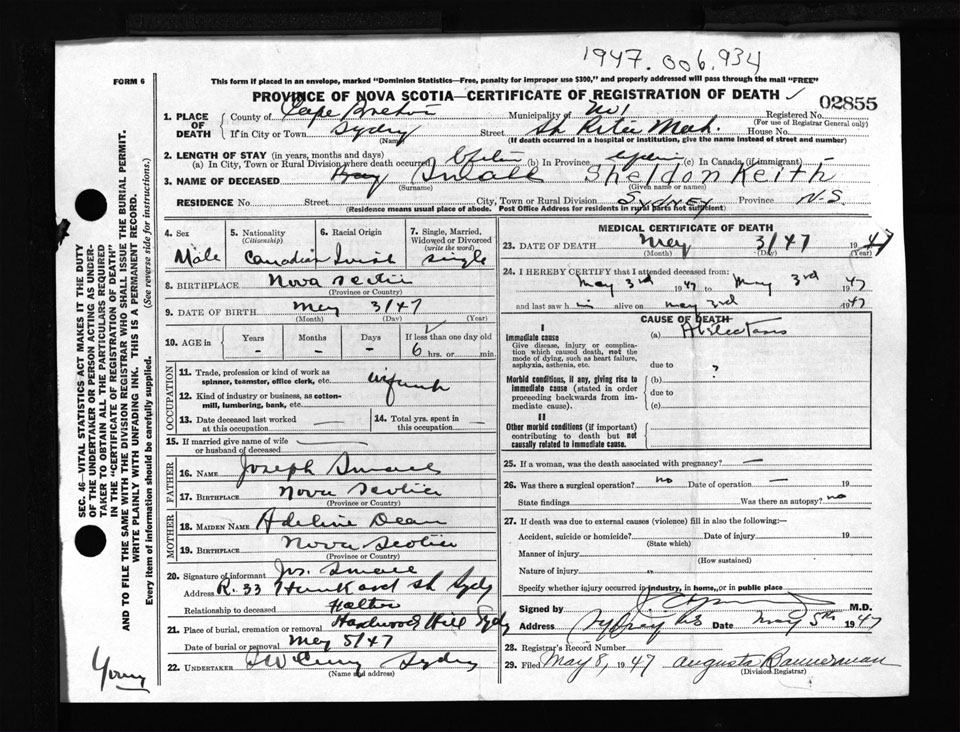 1947.006.934
This form if placed in an envelope, marked "Dominion Statistics—Free, penalty for improper use $300," and properly addressed will pass through the mail "FREE"
FORM 6
PROVINCE OF NOVA SCOTIA—CERTIFICATE OF REGISTRATION OF DEATH
02855
1. PLACE OF DEATH
County of Cape Breton Municipality of Registered No.
(For use of Registrar General only)
If in City or Town Sydney Street St Rita House No.
(Name) (If death occurred in a hospital or institution, give the name instead of street and number)
2. LENGTH OF STAY (in years, months and days)
(a) In City, Town or Rural Division where death occurred (b) In Province (c) In Canada (if immigrant)
3. NAME OF DECEASED Small Sheldon Keith
(Surname) (Given name or names)
RESIDENCE No. Street City, Town or Rural Division Sydney Province N.S.
(Residence means usual place of abode. Post Office Address for residents in rural parts not sufficient)
4. Sex Male
5. Nationality (Citizenship) Canadian
6. Racial Origin
7. Single, Married, Widowed or Divorced (write the word) single
8. BIRTHPLACE Nova Scotia
(Province or Country)
9. DATE OF BIRTH May 3/47
(Month) (Day) (Year)
10. AGE in Years - Months - Days - If less than one day old 6 hrs. or min.
OCCUPATION
11. Trade, profession or kind of work as spinner, teamster, office clerk, etc. infant
12. Kind of industry or business, as cotton-mill, lumbering, bank, etc.
13. Date deceased last worked at this occupation
14. Total yrs. spent in this occupation
15. If married give name of wife or husband of deceased
FATHER
16. NAME Joseph Small
17. BIRTHPLACE Nova Scotia
(Province or Country)
MOTHER
18. MAIDEN NAME Adeline Dean
19. BIRTHPLACE Nova Scotia
(Province or Country)
20. Signature of informant Jos. Small
Address R. 33 St Sydy
Relationship to deceased Father
21. Place of burial, cremation or removal Hardwood Hill Sydy
Date of burial or removal May 5/47
22. UNDERTAKER Sydney
(Name and address)
MEDICAL CERTIFICATE OF DEATH
23. DATE OF DEATH May 3/47 1947
(Month) (Day) (Year)
24. I HEREBY CERTIFY that I attended deceased from:
May 3rd 1947 to May 3rd 1947
and last saw him alive on May 3rd 1947
CAUSE OF DEATH
I
Immediate cause
Give disease, injury or complication which caused death, not the mode of dying, such as heart failure, asphyxia, asthenia, etc.
(a)
due to ?
Morbid conditions, if any, giving rise to immediate cause (stated in order proceeding backwards from immediate cause).
(b)
due to
(c)
II
Other morbid conditions (if important) contributing to death but not causally related to immediate cause.
25. If a woman, was the death associated with pregnancy? —
26. Was there a surgical operation? no Date of operation — 19
State findings Was there an autopsy? no
27. If death was due to external causes (violence) fill in also the following:—
Accident, suicide or homicide? Date of injury 19
(State which)
Manner of injury
(How sustained)
Nature of injury
Specify whether injury occurred in industry, in home, or in public place
Signed by M.D.
Address Sydney NS Date May 5th 1947
28. Registrar's Record Number
29. Filed May 8, 1947 Augusta Bannerman
(Division Registrar)
SEC. 46—VITAL STATISTICS ACT MAKES IT THE DUTY
OF THE UNDERTAKER OR PERSON ACTING AS UNDERTAKER TO OBTAIN ALL THE PARTICULARS REQUIRED
IN THE "CERTIFICATE OF REGISTRATION OF DEATH"
AND TO FILE THE SAME WITH THE DIVISION REGISTRAR WHO SHALL ISSUE THE BURIAL PERMIT.
WRITE PLAINLY WITH UNFADING INK. THIS IS A PERMANENT RECORD.
Every item of information should be carefully supplied. (See reverse side for instructions.)